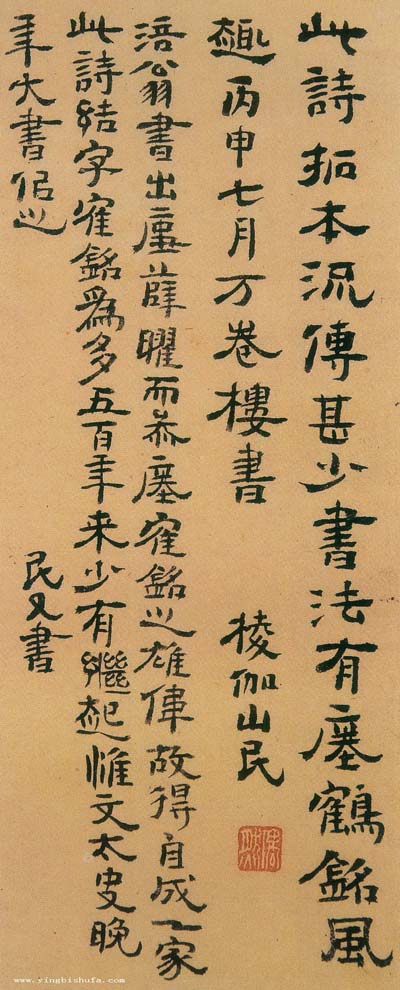 此詩拓本流傳甚少書法有瘞鶴銘風
趣丙申七月万卷樓書 棱伽山民
涪翁書出薛曜而叅瘞寉銘之雄偉故得自成一家
此詩結字寉銘爲多五百年来少有繼起惟文太史晚
年大書侣之 民又書
www.yingbishufa.com